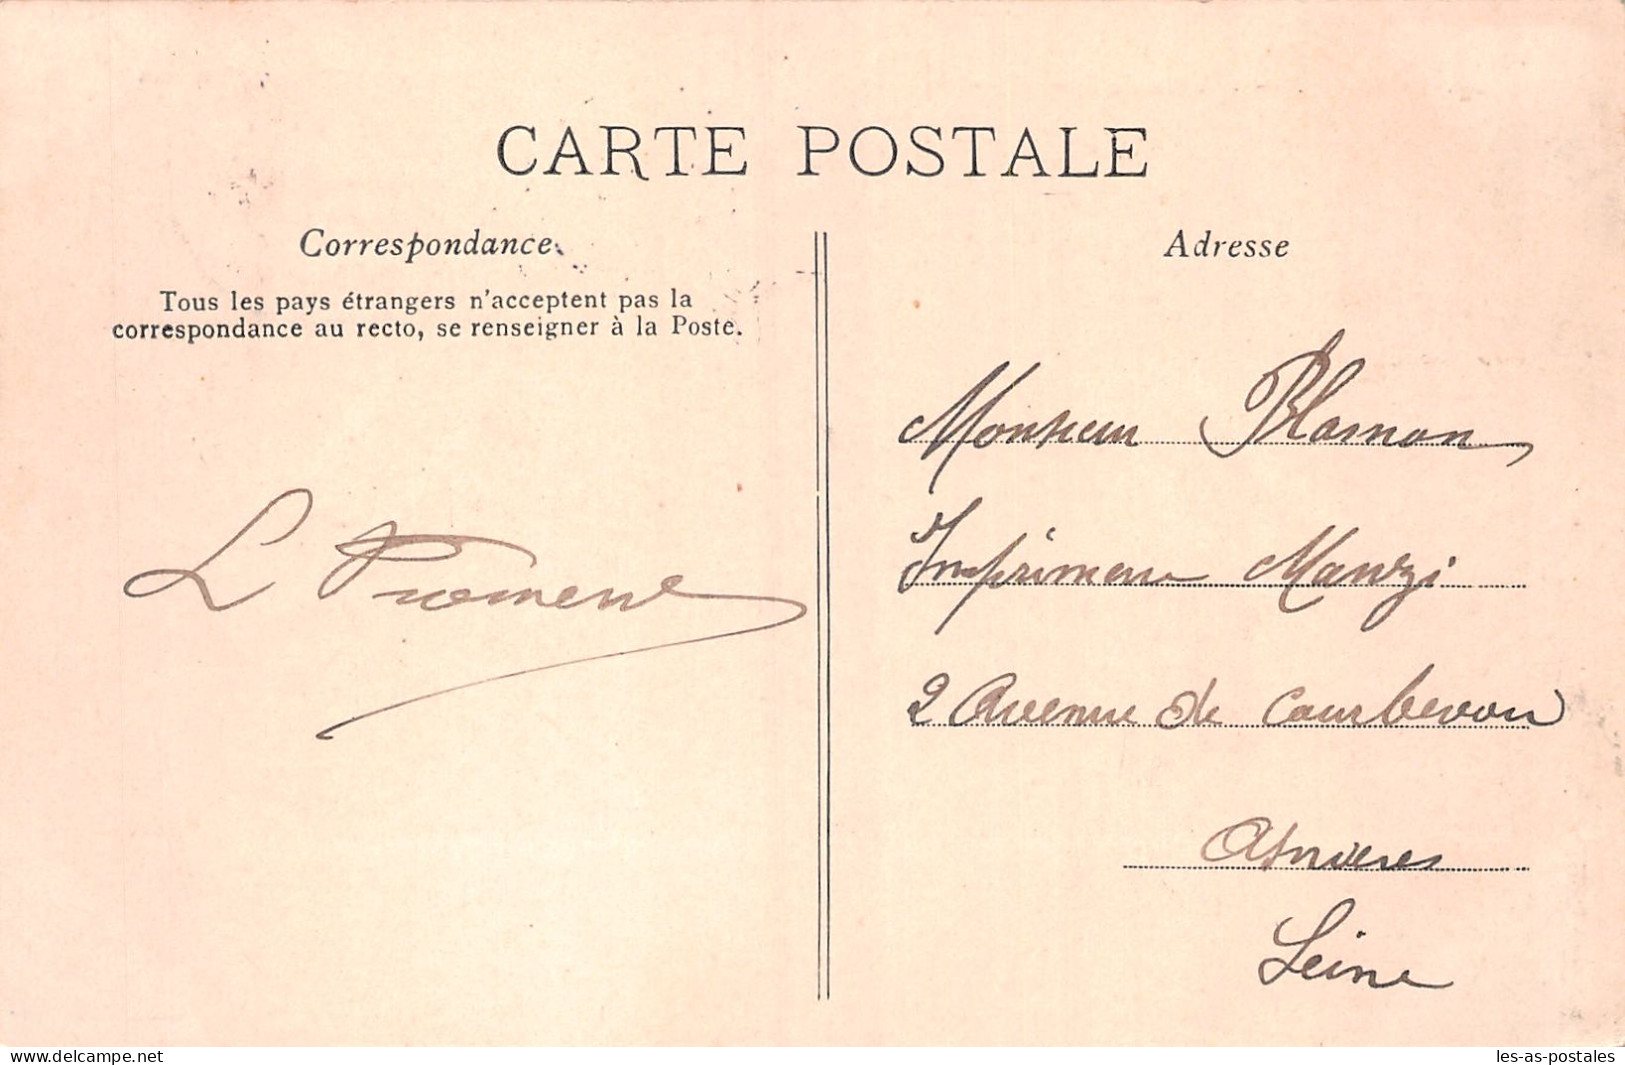 CARTE POSTALE
Correspondance
Tous les pays étrangers n'acceptent pas la
correspondance au recto, se renseigner à la Poste.
L
Adresse
Monsieur Blamon
Imprimerie Manzi
2 Avenue de Courbevoie
Asnieres
Seine
www.delcampe.net
les-as-postales